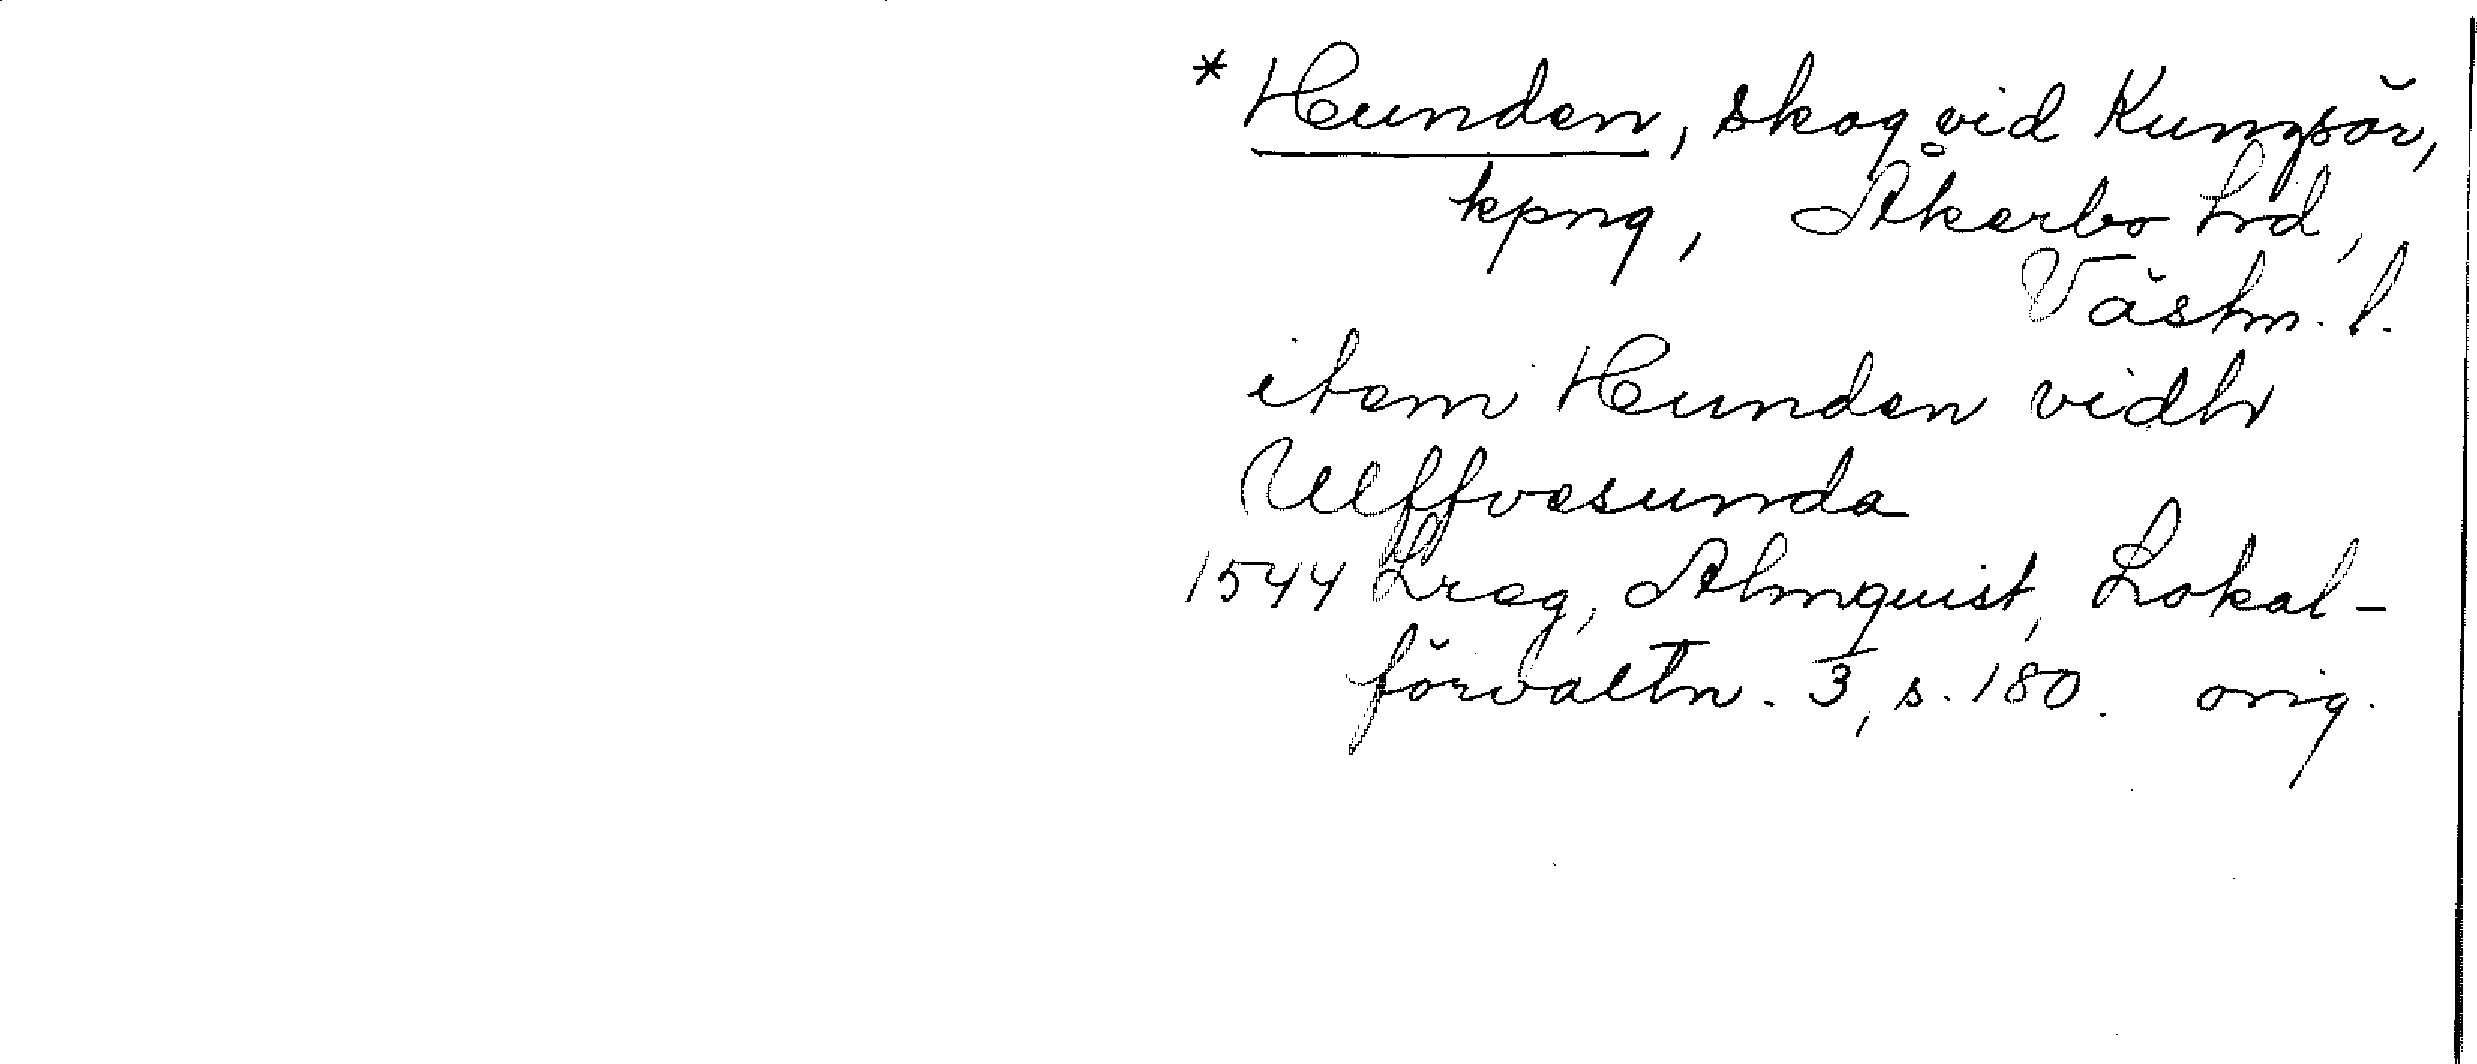 * Hunden, skog vid Kungsör,
kpng, Åkerbo hd,
Västm. l.
item Hunden vidh
Ulffvesunda
1544 Lreg, Almquist, Lokal-
förvaltn. 3, s. 180. orig.